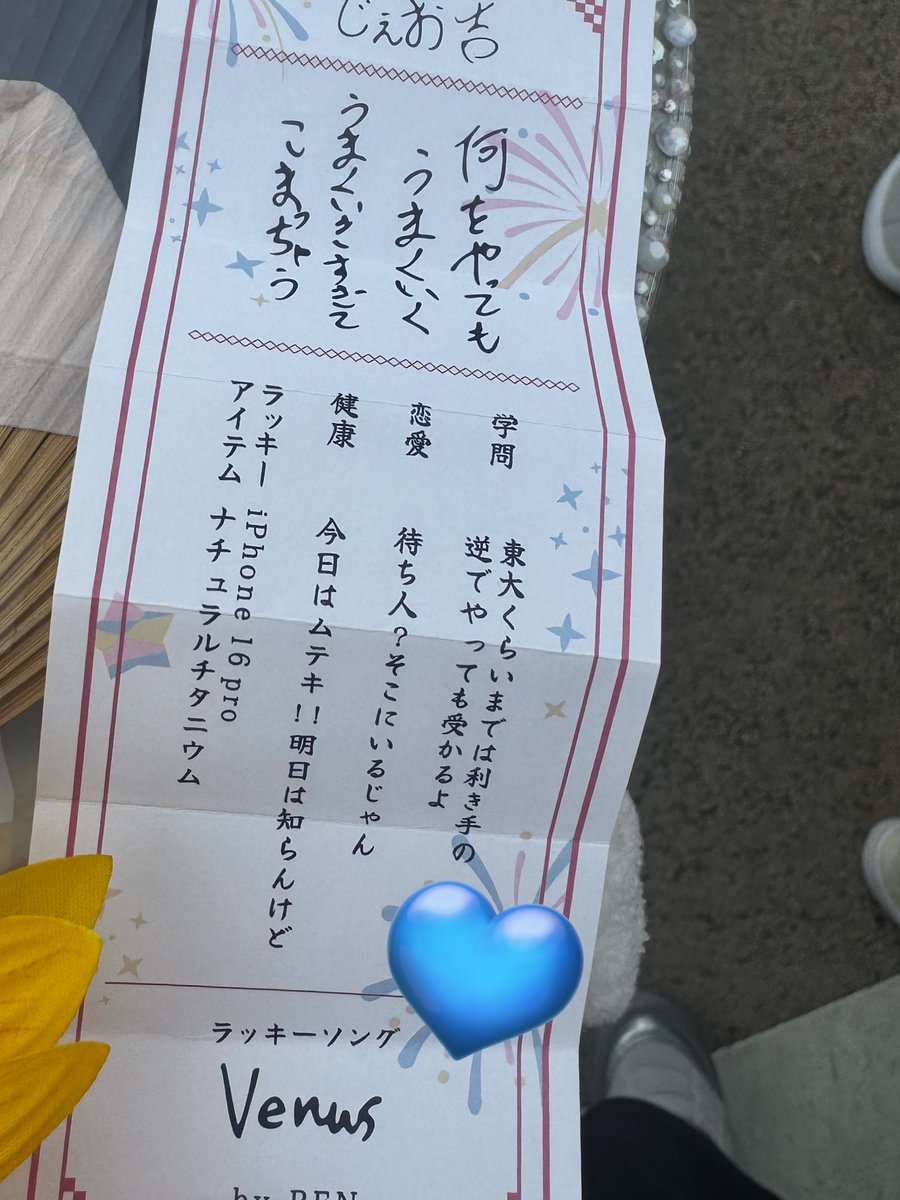 じぇお吉
何をやっても
うまくいく
うまくいきすぎて
こまっちゃう
学問
東大くらいまでは利き手の
逆でやっても受かるよ
恋愛
待ち人?そこにいるじゃん
健康
今日はムテキ!!明日は知らんけど
ラッキー
アイテム
iPhone 16 pro
ナチュラルチタニウム
ラッキーソング
Venus
by REN